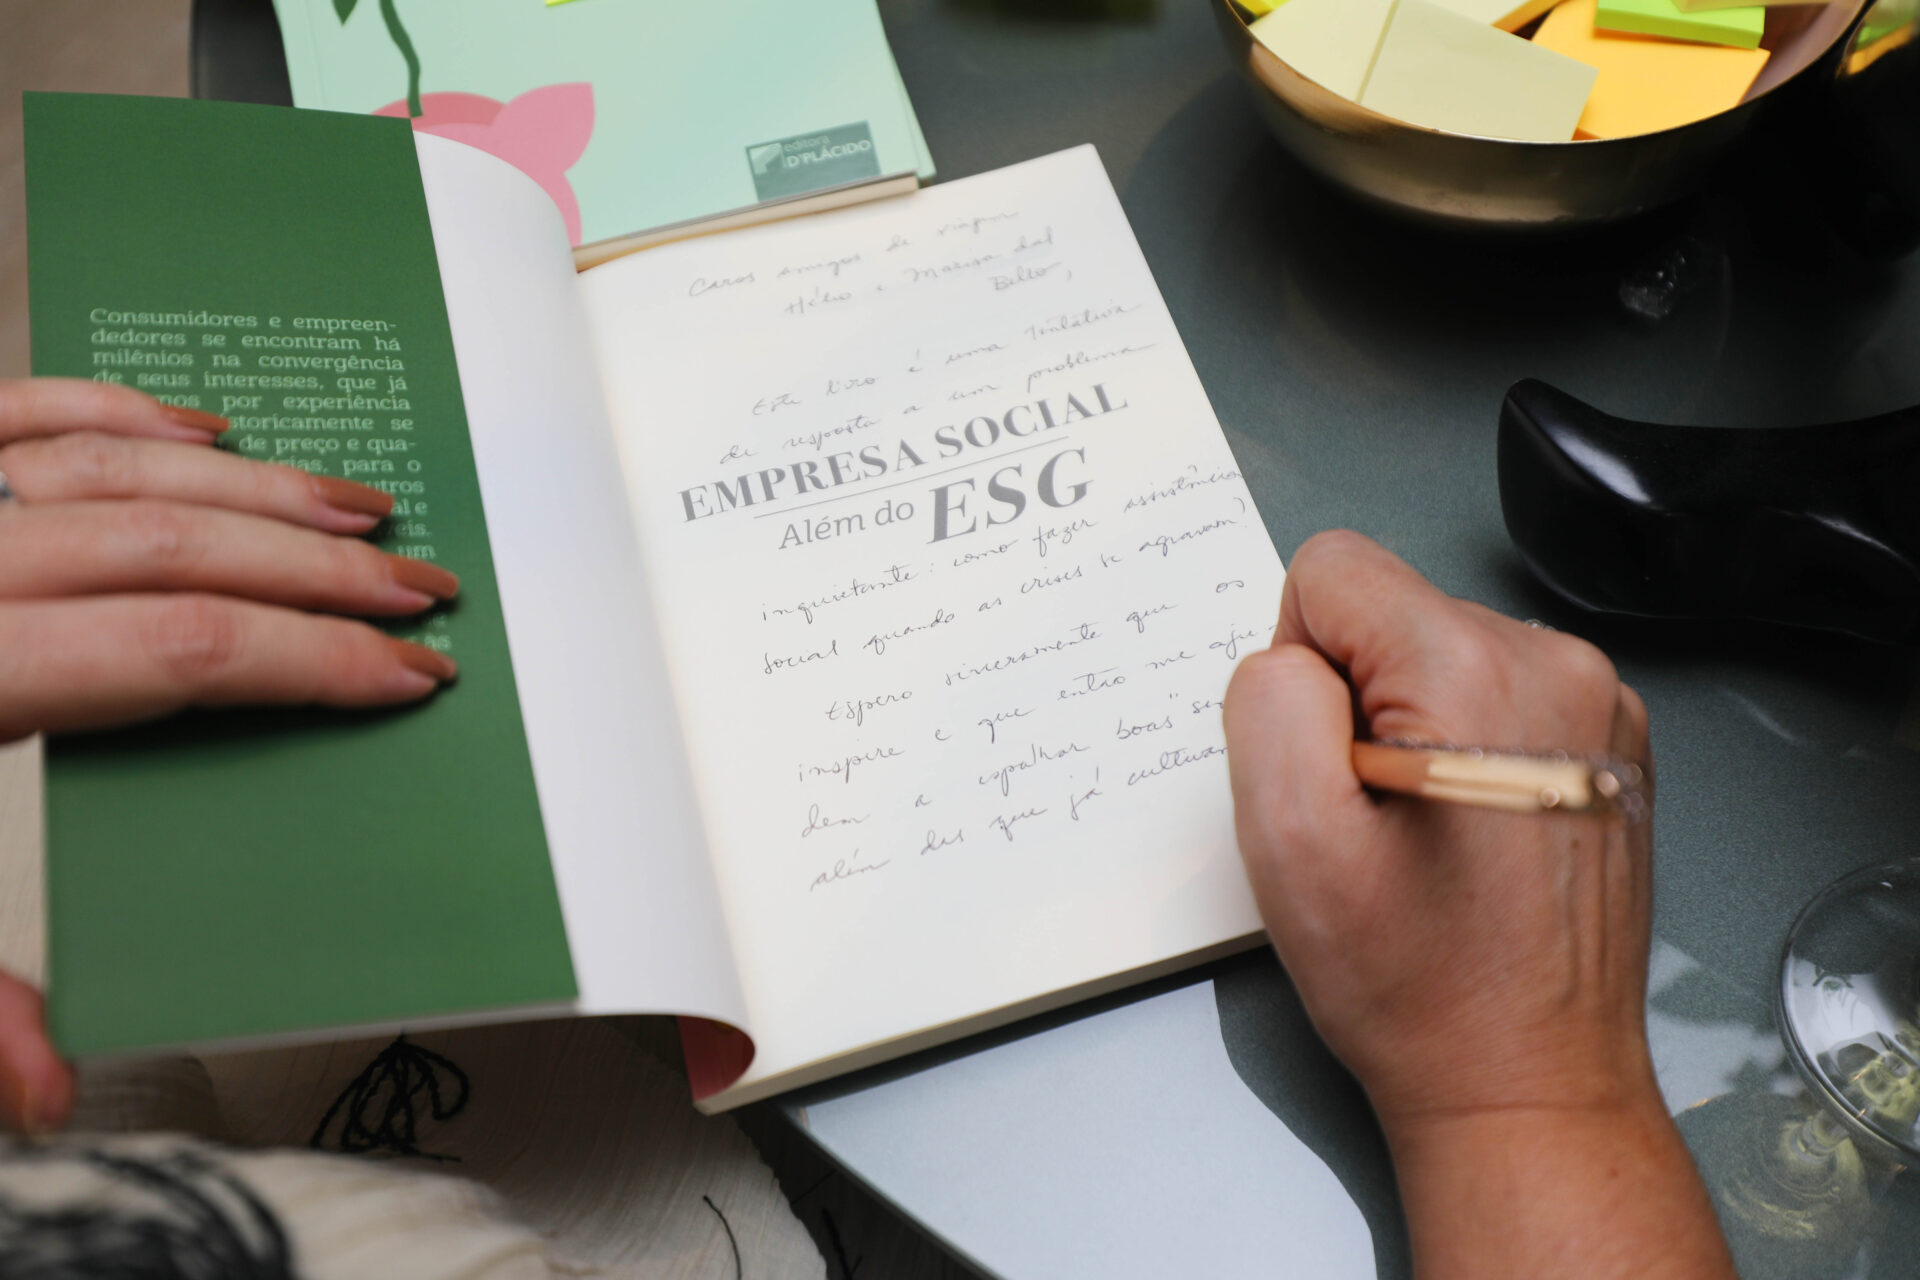 editora
D'PLÁCIDO
Consumidores e empreen-
dedores se encontram há
milênios na convergência
de seus interesses, que já
mos por experiência
storicamente se
de preço e qua-
rias, para o
utros
al e
eis.
um
as
Caros amigos de viagem
Hélio e Marisa dal
Bello,
Este livro é uma tentativa
de resposta a um problema
EMPRESA SOCIAL
Além do ESG
inquietante: como fazer assistência
social quando as crises se agravam?
Espero sinceramente que os
inspire e que então me aju-
dem a espalhar boas "se
além das que já cultivam